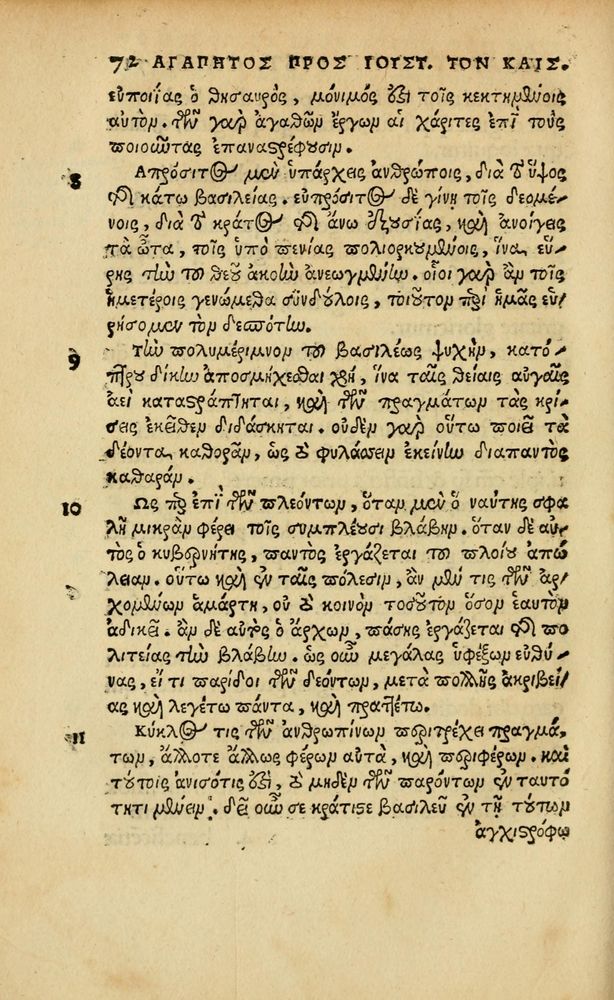 72 ΑΓΑΠΗΤΟΣ ΠΡΟΣ ΙΟΥΣΤ. ΤΟΝ ΚΑΙΣ.
εὐποιΐας ὁ θησαυρὸς, μόνιμός ἐστι τοῖς κεκτημένοις
αὐτόν. τῶν γὰρ ἀγαθῶν ἔργων αἱ χάριτες ἐπὶ τοὺς
ποιοῦντας ἐπαναστρέφουσιν.
8 Απρόσιτος μὲν ὑπάρχεις ἀνθρώποις, διὰ τὸ ὕψος
τῆς κάτω βασιλείας. εὐπρόσιτος δὲ γίνῃ τοῖς δεομέ-
νοις, διὰ τὸ κράτος τῆς ἄνω ἐξουσίας, καὶ ἀνοίγεις
τὰ ὦτα, τοῖς ὑπὸ πενίας πολιορκουμένοις, ἵνα εὕ-
ρῃς τὴν τοῦ θεοῦ ἀκοὴν ἀνεῳγμένην. οἷοι γὰρ ἂν τοῖς
ἡμετέροις γενώμεθα συνδούλοις, τοιοῦτον περὶ ἡμᾶς εὑ-
ρήσομεν τὸν δεσπότην.
9 Τὴν πολυμέριμνον τοῦ βασιλέως ψυχὴν, κατό-
πτρου δίκην ἀποσμήχεσθαι χρὴ, ἵνα ταῖς θείαις αὐγαῖς
ἀεὶ καταστράπτηται, καὶ τῶν πραγμάτων τὰς κρί-
σεις ἐκεῖθεν διδάσκηται. οὐδὲν γὰρ οὕτω ποιεῖ τὰ
δέοντα καθορᾶν, ὡς τὸ φυλάττειν ἐκείνην διαπαντὸς
καθαράν.
10 Ως περ ἐπὶ τῶν πλεόντων, ὅταν μὲν ὁ ναύτης σφα
λῇ μικρὰν φέρει τοῖς συμπλέουσι βλάβην. ὅταν δὲ αὐ-
τὸς ὁ κυβερνήτης, παντὸς ἐργάζεται τοῦ πλοίου ἀπώ
λειαν. οὕτω καὶ ἐν ταῖς πόλεσιν, ἂν μέν τις τῶν ἀρ-
χομένων ἁμάρτῃ, οὐ τὸ κοινὸν τοσοῦτον ὅσον ἑαυτὸν
ἀδικεῖ. ἂν δὲ αὐτὸς ὁ ἄρχων, πάσης ἐργάζεται τῆς πο
λιτείας τὴν βλάβην. ὡς οὖν μεγάλας ὑφέξων εὐθύ-
νας, εἴ τι παρίδοι τῶν δεόντων, μετὰ πολλῆς ἀκριβεί-
ας καὶ λεγέτω πάντα, καὶ πραττέτω.
11 Κύκλος τις τῶν ἀνθρωπίνων περιτρέχει πραγμά-
των, ἄλλοτε ἄλλως φέρων αὐτὰ, καὶ περιφέρων. καὶ
τούτοις ἀνισότις ἐστὶ, τὸ μηδὲν τῶν παρόντων ἐν ταυτό
τητι μένειν. δεῖ οὖν σε κράτιστε βασιλεῦ ἐν τῇ τούτων
ἀγχιστρόφῳ